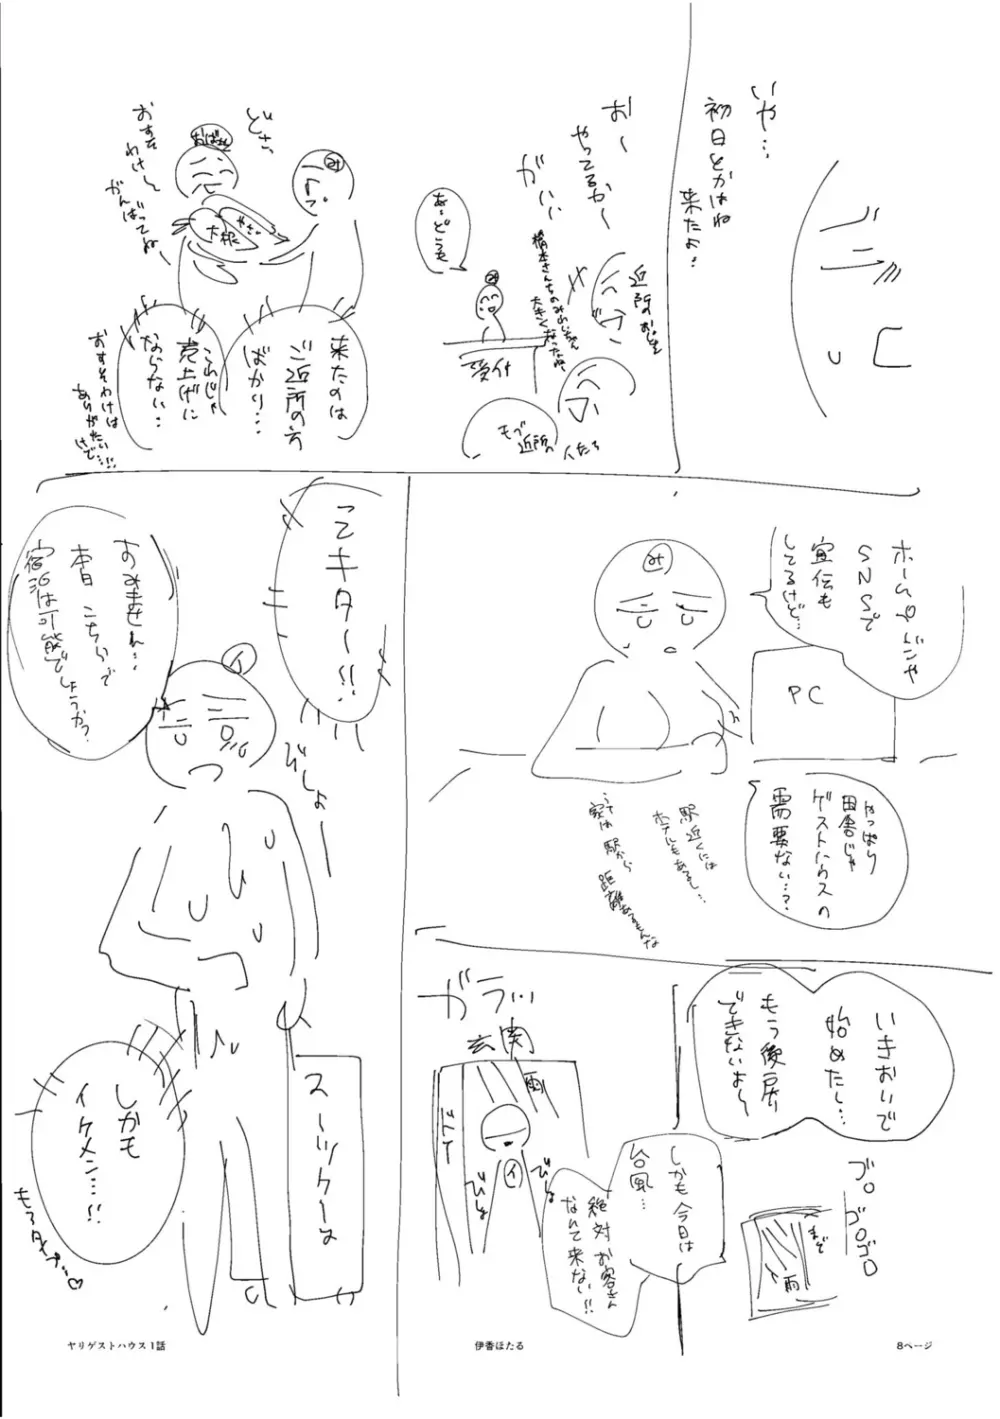 いや…
初日とかはね
来たよ?
おー
やってるかー
ガハハ
近所の
橋本さんちの
大きくなったね
あーどうも
受付
モブ
近所の
人たち
どさっ
み
おばさん
大根
おすそ
わけ〜
がんばってね〜
来たのは
ご近所の方
ばかり…
これじゃ
売上げに
ならない…
おすそわけは
ありがたい
けど…!!
ホームページや
SNSで
宣伝も
してるけど…
み
PC
やっぱり
田舎じゃ
ゲストハウスの
需要ない…?
駅近くには
ホテルもあるし…
駅から
距離あるもんな
ってキター!!
すみません…
本日こちらで
宿泊は可能でしょうか?
イ
びしょー
スーツケース
しかも
イケメン…!!
いきおいで
始めたし…
もう後戻り
できないよ〜
ゴロ
ゴロゴロ
まど
雨
しかも今日は
台風…
絶対お客さん
なんて来ない!!
ガラッ…
玄関
雨
ドア
イ
びしょ
びしょ
ヤリゲストハウス1話
伊香ほたる
8ページ